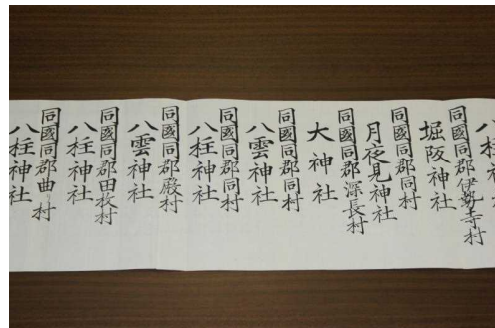 同國同郡伊勢寺村
堀阪神社
同國同郡同村
月夜見神社
同國同郡深長村
大神社
同國同郡同村
八雲神社
同國同郡同村
八柱神社
同國同郡殿村
八雲神社
同國同郡田牧村
八柱神社
同國同郡曲り村
八柱神社